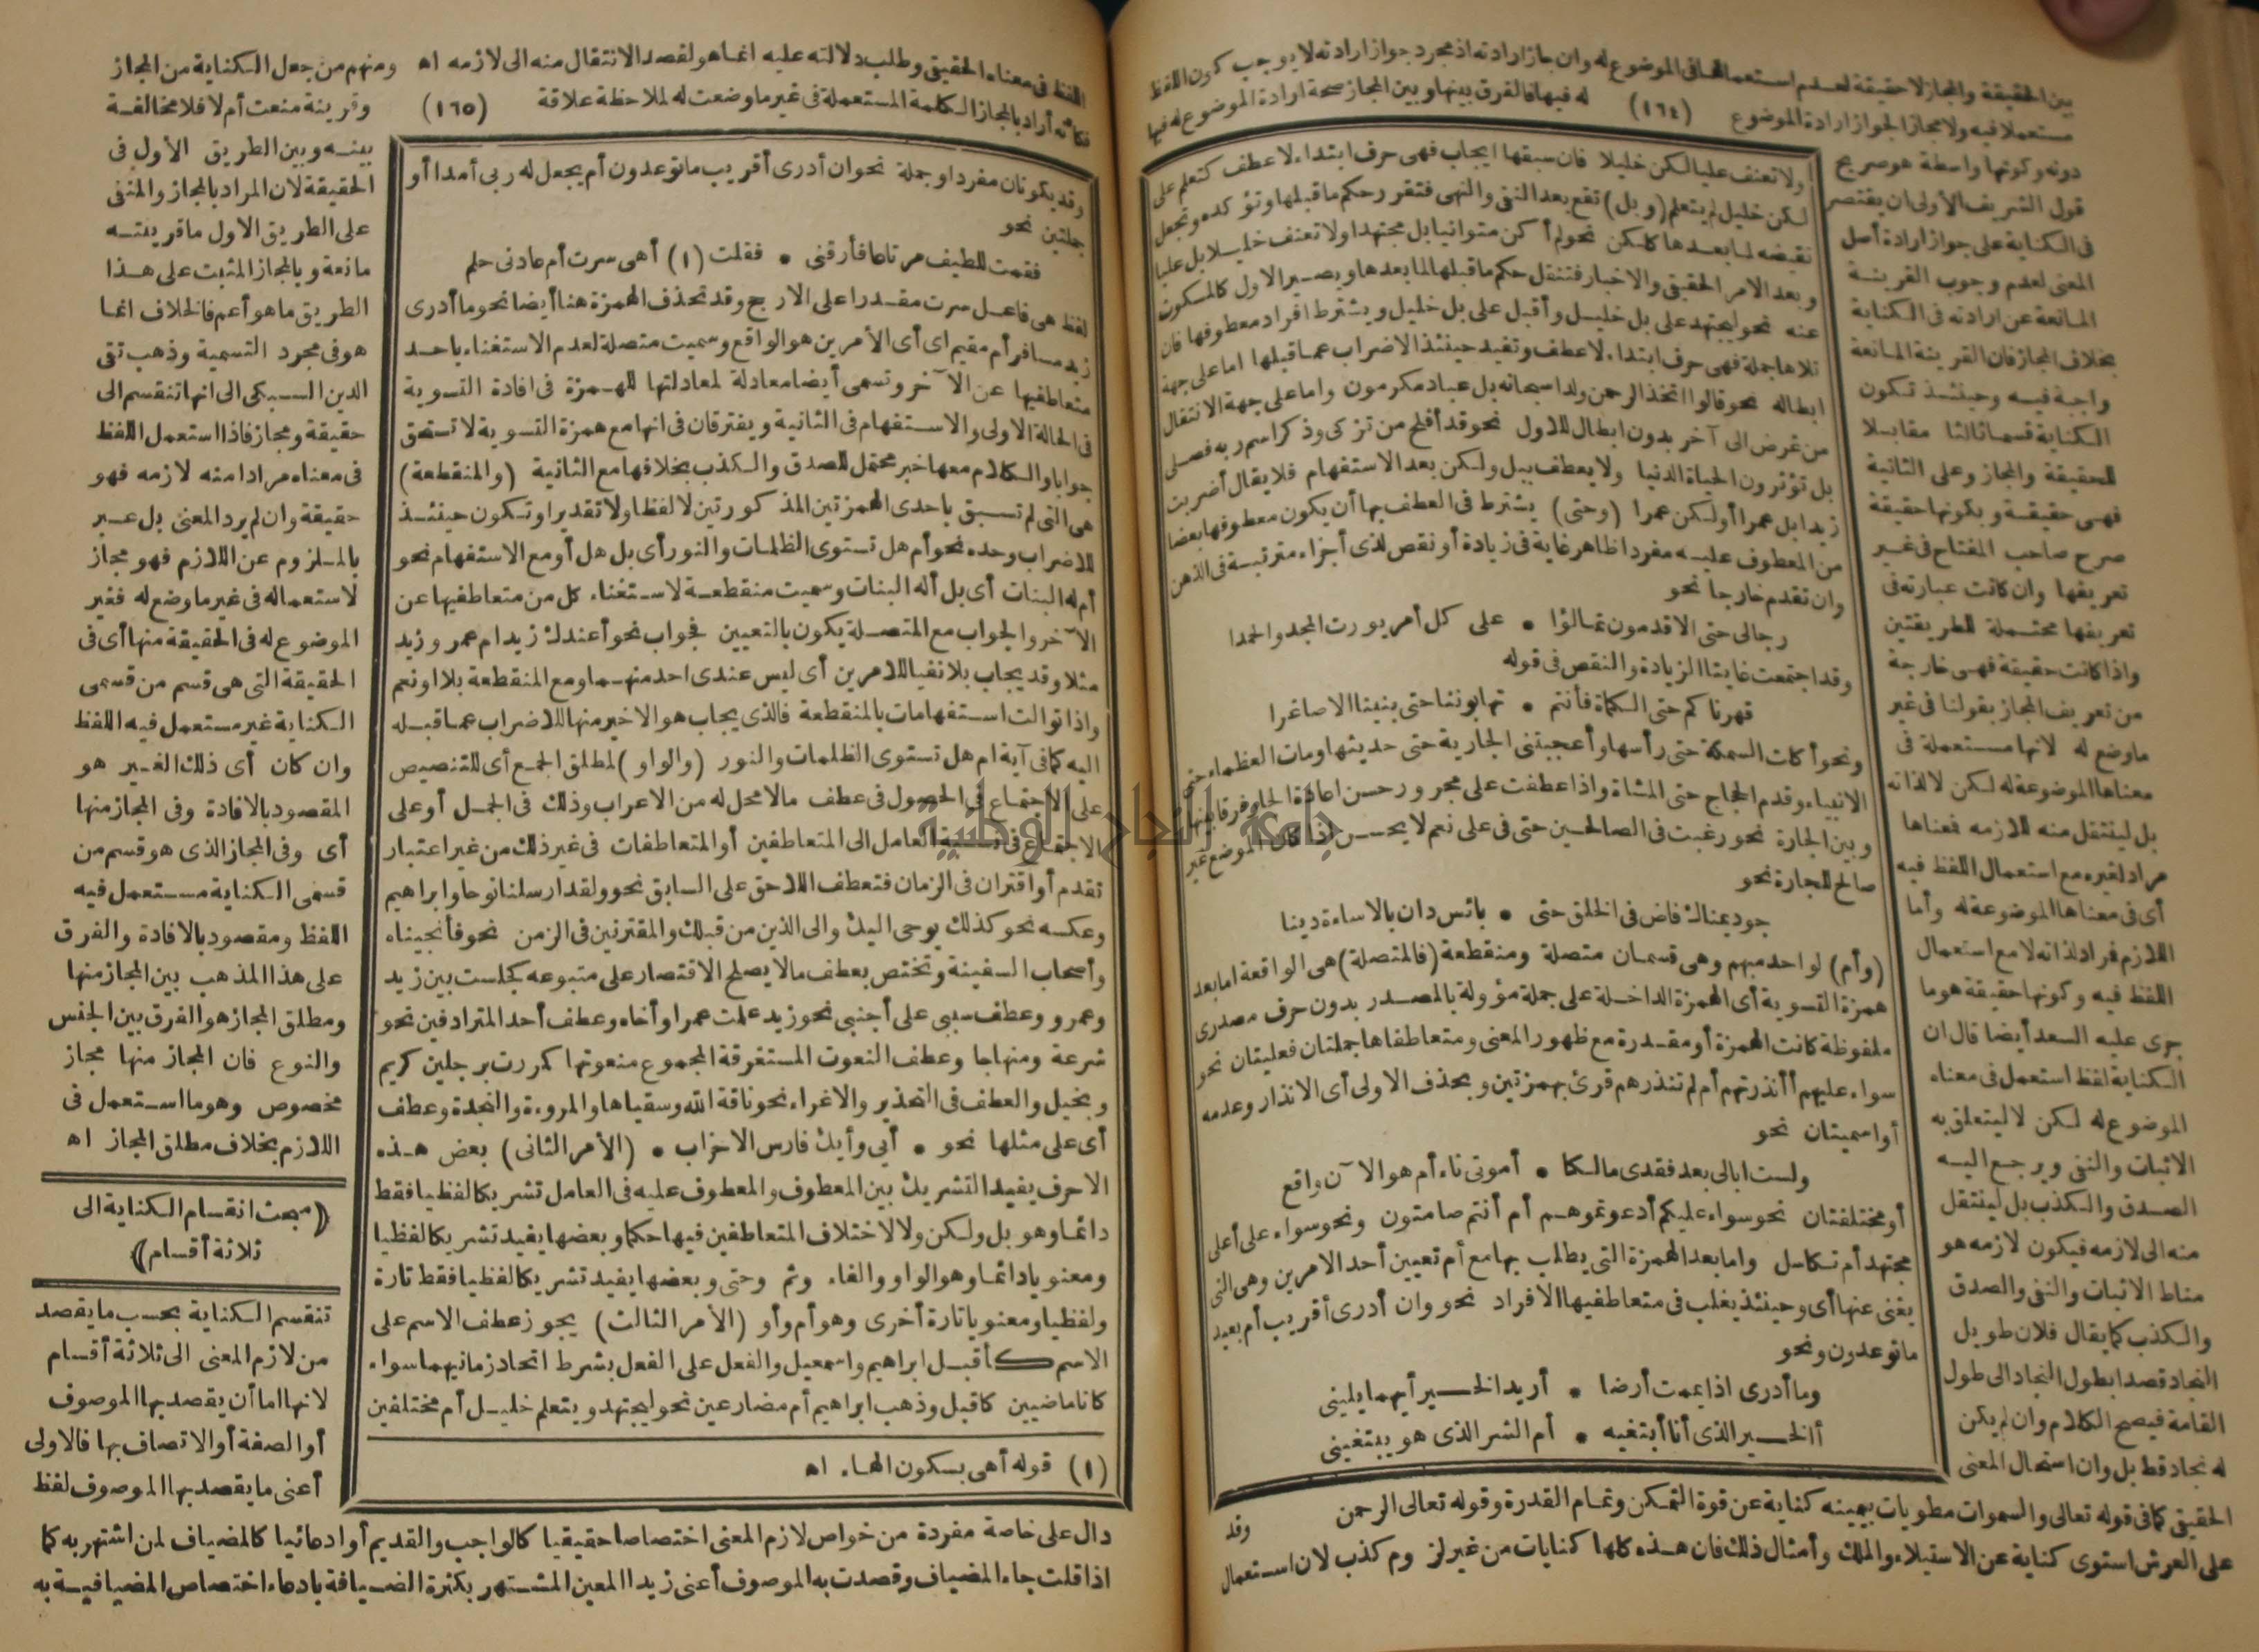 بين الحقيقة والمجاز لا حقيقة لعدم استعمالها فى الموضوع له وان جاز ارادته اذ مجرد جواز ارادته لا يوجب كون اللفظ
مستعملا فيه ولا مجازا لجواز ارادة الموضوع (١٦٤) له فيها فالفرق بينها وبين المجاز صحة ارادة الموضوع له فيها
دونه وكونها واسطة هو صريح
قول الشريف الأولى ان يقتصر
فى الكناية على جواز ارادة أصل
المعنى لعدم وجوب القرينة
المانعة عن ارادته فى الكناية
بخلاف المجاز فان القرينة المانعة
واجبة فيه وحينئذ تكون
الكناية قسما ثالثا مقابلا
للحقيقة والمجاز وعلى الثانية
فهى حقيقة وبكونها حقيقة
صرح صاحب المفتاح فى غير
تعريفها وان كانت عبارته فى
تعريفها محتملة للطريقتين
واذا كانت حقيقة فهى خارجة
من تعريف المجاز بقولنا فى غير
ما وضع له لانها مستعملة فى
معناها الموضوعة له لكن لا لذاته
بل لينتقل منه للازمه فمعناها
مراد لغيره مع استعمال اللفظ فيه
أى فى معناها الموضوعة له وأما
اللازم فراد لذاته لا مع استعمال
اللفظ فيه وكونها حقيقة هو ما
جرى عليه السعد أيضا قال ان
الكناية لفظ استعمل فى معناه
الموضوع له لكن لا ليتعلق به
الاثبات والنفى ويرجع اليه
الصدق والكذب بل لينتقل
منه الى لازمه فيكون لازمه هو
مناط الاثبات والنفى والصدق
والكذب كما يقال فلان طويل
النجاد قصدا بطول النجاد الى طول
القامة فيصح الكلام وان لم يكن
له نجاد قط بل وان استحال المعنى
ولا تعنف عليا لكن خليلا فان سبقها ايجاب فهى حرف ابتداء لا عطف كتعلم على
لكن خليل لم يتعلم (وبل) تقع بعد النفى والنهى فتقرر حكم ما قبلها وتؤكده وتجعل
نقيضه لما بعدها كلكن نحو لم أكن متوانيا بل مجتهدا ولا تعنف خليلا بل عليا
وبعد الامر الحقيقى والاخبار فتنقل حكم ما قبلها لما بعدها ويصير الاول كالمسكوت
عنه نحو ليجتهد على بل خليل وأقبل على بل خليل ويشترط افراد معطوفها فان
تلاها جملة فهى حرف ابتداء لا عطف وتفيد حينئذ الاضراب عما قبلها اما على جهة
ابطاله نحو قالوا اتخذ الرحمن ولدا سبحانه بل عباد مكرمون واما على جهة الانتقال
من غرض الى آخر بدون ابطال للاول نحو قد أفلح من تزكى وذكر اسم ربه فصلى
بل تؤثرون الحياة الدنيا ولا يعطف ببل ولكن بعد الاستفهام فلا يقال أضربت
زيدا بل عمرا أو لكن عمرا (وحتى) يشترط فى العطف بها أن يكون معطوفها بعضا
من المعطوف عليه مفردا ظاهر غاية فى زيادة أو نقص لذى أجزاء مترتبة فى الذهن
وان تقدم خارجا نحو
رجالى حتى الاقدمون تمالؤا • على كل أمر يورث المجد والحمدا
وقد اجتمعت غايتا الزيادة والنقص فى قوله
قهرنا كم حتى الكماة فأنتم • تهابوننا حتى بنينا الاصاغرا
ونحو أكلت السمكة حتى رأسها وأعجبتنى الجارية حتى حديثها ومات العظماء حتى
الانبياء وقدم الحجاج حتى المشاة واذا عطفت على مجرور حسن اعادة الجار فرقا بينها
وبين الجارة نحو رغبت فى الصالحين حتى فى على نعم لا يحسن اذا كان الموضع غير
صالح للجارة نحو
جود يمناك فاض فى الخلق حتى • بائس دان بالاساءة دينا
(وأم) لواحد مبهم وهى قسمان متصلة ومنقطعة (فالمتصلة) هى الواقعة اما بعد
همزة التسوية أى الهمزة الداخلة على جملة مؤولة بالمصدر بدون حرف مصدرى
ملفوظة كانت الهمزة أو مقدرة مع ظهور المعنى ومتعاطفاها جملتان فعليتان نحو
سواء عليهم أأنذرتهم أم لم تنذرهم قرئ بهمزتين وبحذف الاولى أى الانذار وعدمه
أو اسميتان نحو
ولست ابالى بعد فقدى مالكا • أموتى ناء أم هو الآن واقع
أو مختلفتان نحو سواء عليكم أدعوتموهم أم أنتم صامتون ونحو سواء على أعلى
مجتهد أم تكاسل واما بعد الهمزة التى يطلب بها مع أم تعيين أحد الامرين وهى التى
يغنى عنها أى وحينئذ يغلب فى متعاطفيها الافراد نحو وان أدرى أقريب أم بعيد
ما توعدون ونحو
وما أدرى اذا يممت أرضا • أريد الخير أيهما يلينى
أالخير الذى أنا أبتغيه • أم الشر الذى هو يبتغينى
الحقيقى كما فى قوله تعالى والسموات مطويات بيمينه كناية عن قوة التمكن وتمام القدرة وقوله تعالى الرحمن
على العرش استوى كناية عن الاستيلاء والملك وأمثال ذلك فان هذه كلها كنايات من غير لزوم كذب لان استعمال
وقد
اللفظ فى معناه الحقيقى وطلب دلالته عليه انما هو لقصد الانتقال منه الى لازمه اه ومنهم من جعل الكناية من المجاز
فكأنه أراد بالمجاز الكلمة المستعملة فى غير ما وضعت له لملاحظة علاقة (١٦٥) وقرينة منعت أم لا فلا مخالفة
وقد يكونان مفردا وجملة نحو ان أدرى أقريب ما توعدون أم يجعل له ربى أمدا أو
جملتين نحو
فقمت للطيف مرتاعا فأرقنى • فقلت (١) أهى سرت أم عادنى حلم
لفظ هى فاعل سرت مقدرا على الارجح وقد تحذف الهمزة هنا أيضا نحو ما أدرى
زيد مسافر أم مقيم اى أى الأمرين هو الواقع وسميت متصلة لعدم الاستغناء باحد
متعاطفيها عن الآخر وتسمى أيضا معادلة لمعادلتها للهمزة فى افادة التسوية
فى الحالة الاولى والاستفهام فى الثانية ويفترقان فى انها مع همزة التسوية لا تستحق
جوابا والكلام معها خبر محتمل للصدق والكذب بخلافها مع الثانية (والمنقطعة)
هى التى لم تسبق باحدى الهمزتين المذكورتين لا لفظا ولا تقديرا وتكون حينئذ
للاضراب وحده نحو أم هل تستوى الظلمات والنور أى بل هل أو مع الاستفهام نحو
أم له البنات أى بل أله البنات وسميت منقطعة لاستغناء كل من متعاطفيها عن
الآخر والجواب مع المتصلة يكون بالتعيين فجواب نحو أعندك زيد ام عمرو زيد
مثلا وقد يجاب بلا نفيا للامرين أى ليس عندى احد منهما ومع المنقطعة بلا او نعم
واذا توالت استفهامات بالمنقطعة فالذى يجاب هو الاخير منها للاضراب عما قبله
اليه كما فى آية ام هل تستوى الظلمات والنور (والواو) لمطلق الجمع أى للتنصيص
على الاجتماع فى الحصول فى عطف مالا محل له من الاعراب وذلك فى الجمل أو على
الاجتماع فى نسبة العامل الى المتعاطفين أو المتعاطفات فى غير ذلك من غير اعتبار
تقدم أو اقتران فى الزمان فتعطف اللاحق على السابق نحو ولقد ارسلنا نوحا وابراهيم
وعكسه نحو كذلك يوحى اليك والى الذين من قبلك والمقترنين فى الزمن نحو فأنجيناه
وأصحاب السفينة وتختص بعطف مالا يصلح الاقتصار على متبوعه كجلست بين زيد
وعمرو وعطف سببى على أجنبى نحو زيد علمت عمرا وأخاه وعطف أحد المترادفين نحو
شرعة ومنهاجا وعطف النعوت المستغرقة المجموع منعوتها كمررت برجلين كريم
وبخيل والعطف فى التحذير والاغراء نحو ناقة الله وسقياها والمروءة والنجدة وعطف
أى على مثلها نحو • أيى وأيك فارس الاحزاب • (الأمر الثانى) بعض هذه
الاحرف يفيد التشريك بين المعطوف والمعطوف عليه فى العامل تشريكا لفظيا فقط
دائما وهو بل ولكن ولا لاختلاف المتعاطفين فيها حكما وبعضها يفيد تشريكا لفظيا
ومعنويا دائما وهو الواو والفاء وثم وحتى وبعضها يفيد تشريكا لفظيا فقط تارة
ولفظيا ومعنويا تارة أخرى وهو أم وأو (الأمر الثالث) يجوز عطف الاسم على
الاسم كأقبل ابراهيم واسمعيل والفعل على الفعل بشرط اتحاد زمانيهما سواء
كانا ماضيين كاقبل وذهب ابراهيم أم مضارعين نحو ليجتهد ويتعلم خليل أم مختلفين
(١) قوله أهى بسكون الهاء اه
بينه وبين الطريق الأول فى
الحقيقة لان المراد بالمجاز والمنفى
على الطريق الاول ما قرينته
مانعة وبالمجاز المثبت على هذا
الطريق ما هو أعم فالخلاف انما
هو فى مجرد التسمية وذهب تقى
الدين السبكى الى انها تنقسم الى
حقيقة ومجاز فاذا استعمل اللفظ
فى معناه مرادا منه لازمه فهو
حقيقة وان لم يرد المعنى بل عبر
بالملزوم عن اللازم فهو مجاز
لاستعماله فى غير ما وضع له فغير
الموضوع له فى الحقيقة منها أى فى
الحقيقة التى هى قسم من قسمى
الكناية غير مستعمل فيه اللفظ
وان كان أى ذلك الغير هو
المقصود بالافادة وفى المجاز منها
أى وفى المجاز الذى هو قسم من
قسمى الكناية مستعمل فيه
اللفظ ومقصود بالافادة والفرق
على هذا المذهب بين المجاز منها
ومطلق المجاز هو الفرق بين الجنس
والنوع فان المجاز منها مجاز
مخصوص وهو ما استعمل فى
اللازم بخلاف مطلق المجاز اه
(مبحث انقسام الكناية الى
ثلاثة أقسام)
تنقسم الكناية بحسب ما يقصد
من لازم المعنى الى ثلاثة أقسام
لانها اما أن يقصد بها الموصوف
أو الصفة أو الاتصاف بها فالاولى
أعنى ما يقصد بها الموصوف لفظ
دال على خاصة مفردة من خواص لازم المعنى اختصاصا حقيقيا كالواجب والقديم أو ادعائيا كالمضياف لمن اشتهر به كما
اذا قلت جاء المضياف وقصدت به الموصوف أعنى زيدا المعين المشتهر بكثرة الضيافة بادعاء اختصاص المضيافية به
جامعة النجاح الوطنية